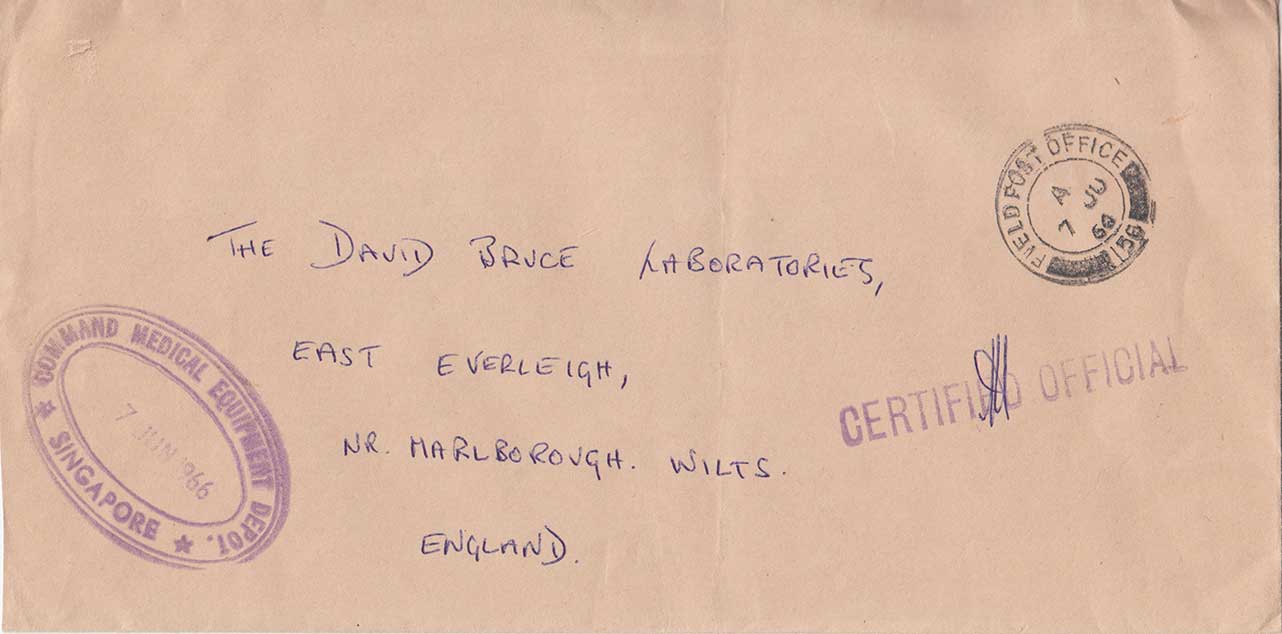 FIELD POST OFFICE
156
THE DAVID BRUCE LABORATORIES,
EAST EVERLEIGH,
NR. MARLBOROUGH. WILTS.
ENGLAND.
CERTIFIED OFFICIAL
COMMAND MEDICAL EQUIPMENT DEPOT.
7 JUN 1966
★ SINGAPORE ★